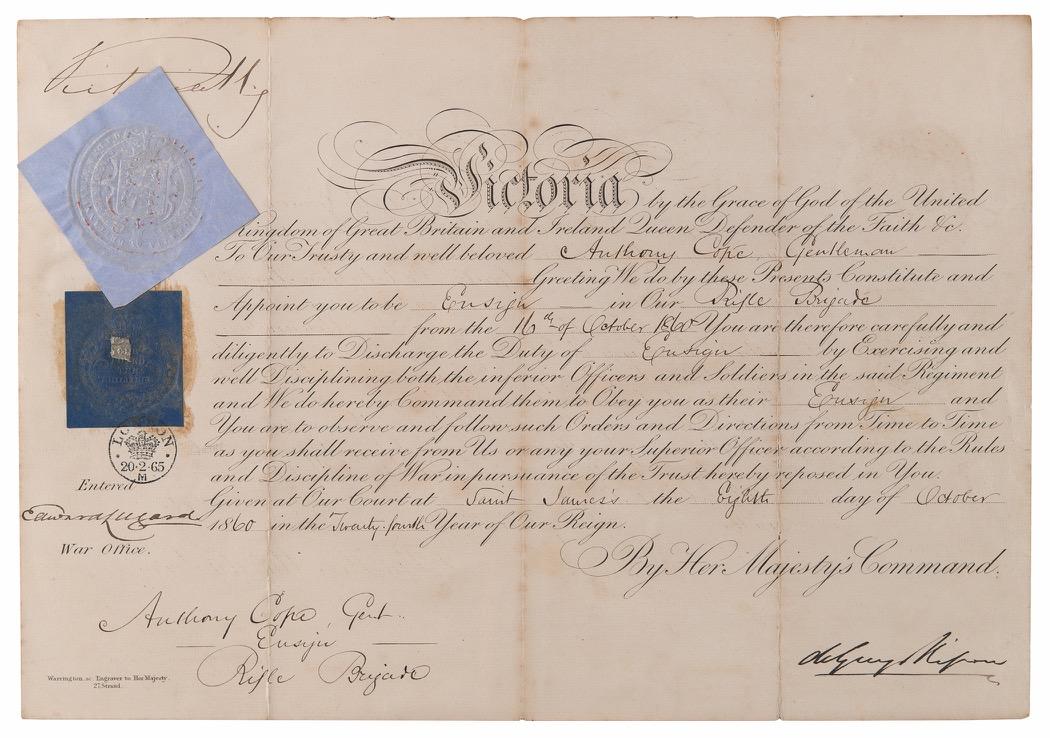 Victoria
by the Grace of God of the United
Kingdom of Great Britain and Ireland Queen Defender of the Faith &c.
To Our Trusty and well beloved Anthony Cope, Gentleman
Greeting We do by these Presents Constitute and
Appoint you to be Ensign in Our Rifle Brigade
from the 16th of October 1860 You are therefore carefully and
diligently to Discharge the Duty of Ensign by Exercising and
well Disciplining both the inferior Officers and Soldiers in the said Regiment
and We do hereby Command them to Obey you as their Ensign and
You are to observe and follow such Orders and Directions from Time to Time
as you shall receive from Us or any your Superior Officer according to the Rules
and Discipline of War in pursuance of the Trust hereby reposed in You.
Given at Our Court at Saint James's the Eighth day of October
1860 in the Twenty-fourth Year of Our Reign.
By Her Majesty's Command.
LONDON
20·2·65
M
Entered
Edward Lugard
War Office.
Anthony Cope, Gent.
Ensign
Rifle Brigade
de Grey & Ripon
Warrington, sc. Engraver to Her Majesty.
27, Strand.